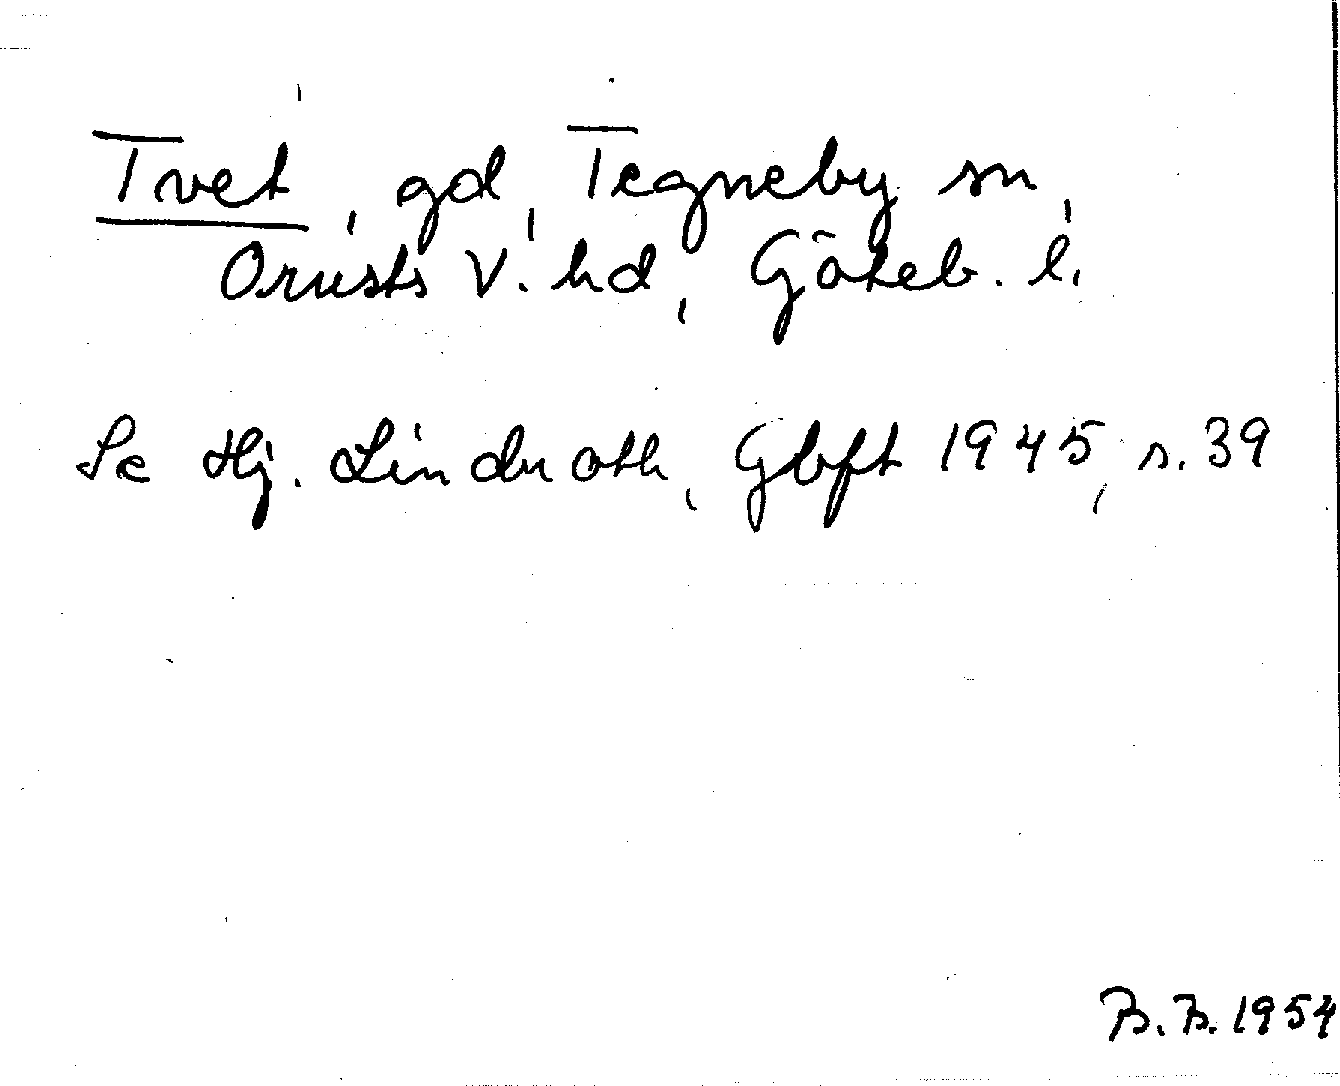 Tvet, gd, Tegneby sn,
Orusts V. hd, Göteb. l.
Se Hj. Lindroth, Gbft 1945, s. 39
B. B. 1954